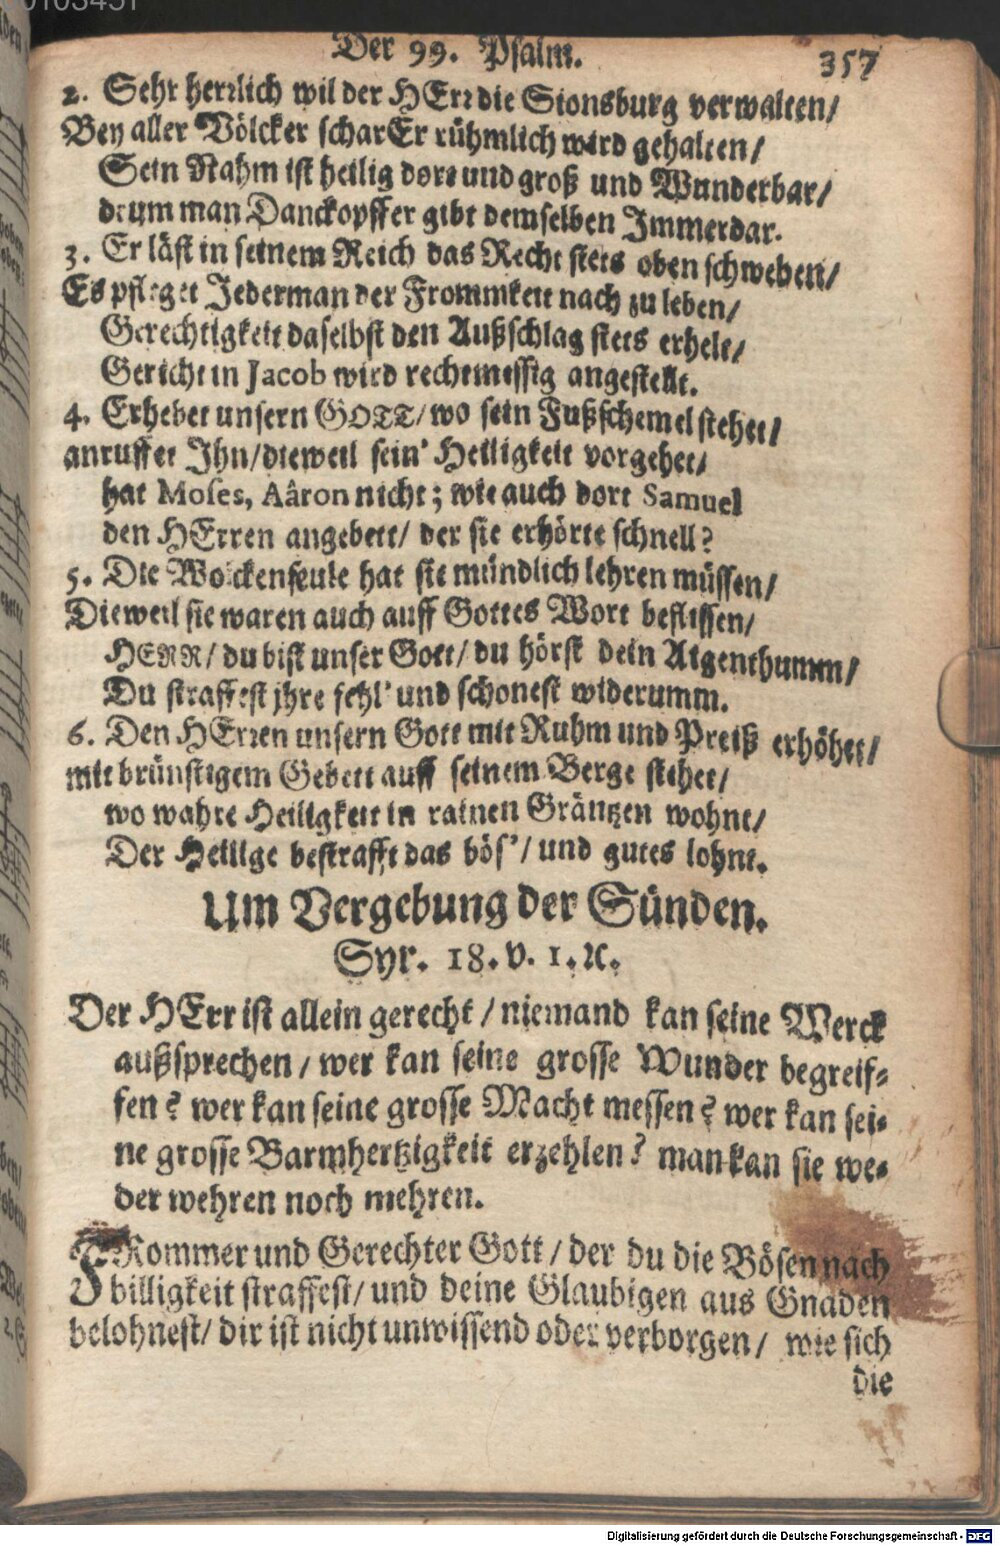 Der 99. Psalm. 357
2. Sehr herrlich wil der HErr die Sionsburg verwalten/
Bey aller Völcker schar Er rühmlich wird gehalten/
Sein Nahm ist heilig dort und groß und Wunderbar/
drum man Danckopffer gibt demselben Immerdar.
3. Er läst in seinem Reich das Recht stets oben schweben/
Es pfleget Jederman der Frommkeit nach zu leben/
Gerechtigkeit daselbst den Außschlag stets erhelt/
Gericht in Jacob wird rechtmessig angestellt.
4. Erhebet unsern GOTT/ wo sein Fußschemel stehet/
anruffet Ihn/ dieweil sein' Heiligkeit vorgehet/
hat Moses, Aâron nicht; wie auch dort Samuel
den HErren angebett/ der sie erhörte schnell?
5. Die Wolckenseule hat sie mündlich lehren müssen/
Dieweil sie waren auch auff Gottes Wort beflissen/
HERR/ du bist unser Gott/ du hörst dein Aigenthumm/
Du straffest jhre fehl' und schonest widerumm.
6. Den HErren unsern Gott mit Ruhm und Preiß erhöhet/
mit brünstigem Gebett auff seinem Berge stehet/
wo wahre Heiligkeit in rainen Gräntzen wohnt/
Der Heilige bestrafft das bös'/ und gutes lohnt.
Um Vergebung der Sünden.
Syr. 18. v. 1. ꝛc.
Der HErr ist allein gerecht/ niemand kan seine Werck
außsprechen/ wer kan seine grosse Wunder begreif-
fen? wer kan seine grosse Macht messen? wer kan sei-
ne grosse Barmhertzigkeit erzehlen? man kan sie we-
der wehren noch mehren.
FRommer und Gerechter Gott/ der du die Bösen nach
billigkeit straffest/ und deine Glaubigen aus Gnaden
belohnest/ dir ist nicht unwissend oder verborgen/ wie sich
die
Digitalisierung gefördert durch die Deutsche Forschungsgemeinschaft - DFG